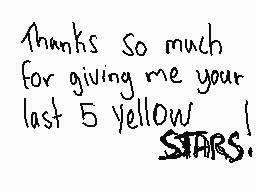 Thanks so much
for giving me your
last 5 yellow
STARS!